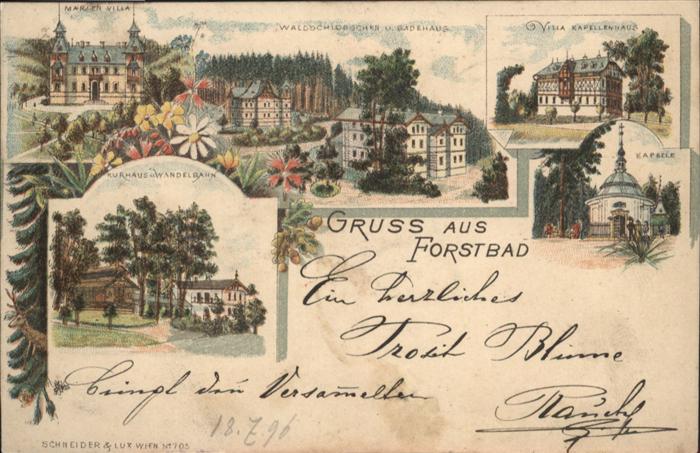 MARIEN VILLA
WALDSCHLÖSSCHEN U. BADEHAUS
VILLA KAPELLENHAUS
KURHAUS U. WANDELBAHN
KAPELLE
GRUSS AUS
FORSTBAD
Ein herzliches
Prosit Blume
bringt den Versam̅elten
18.7.96
SCHNEIDER & LUX WIEN No 705